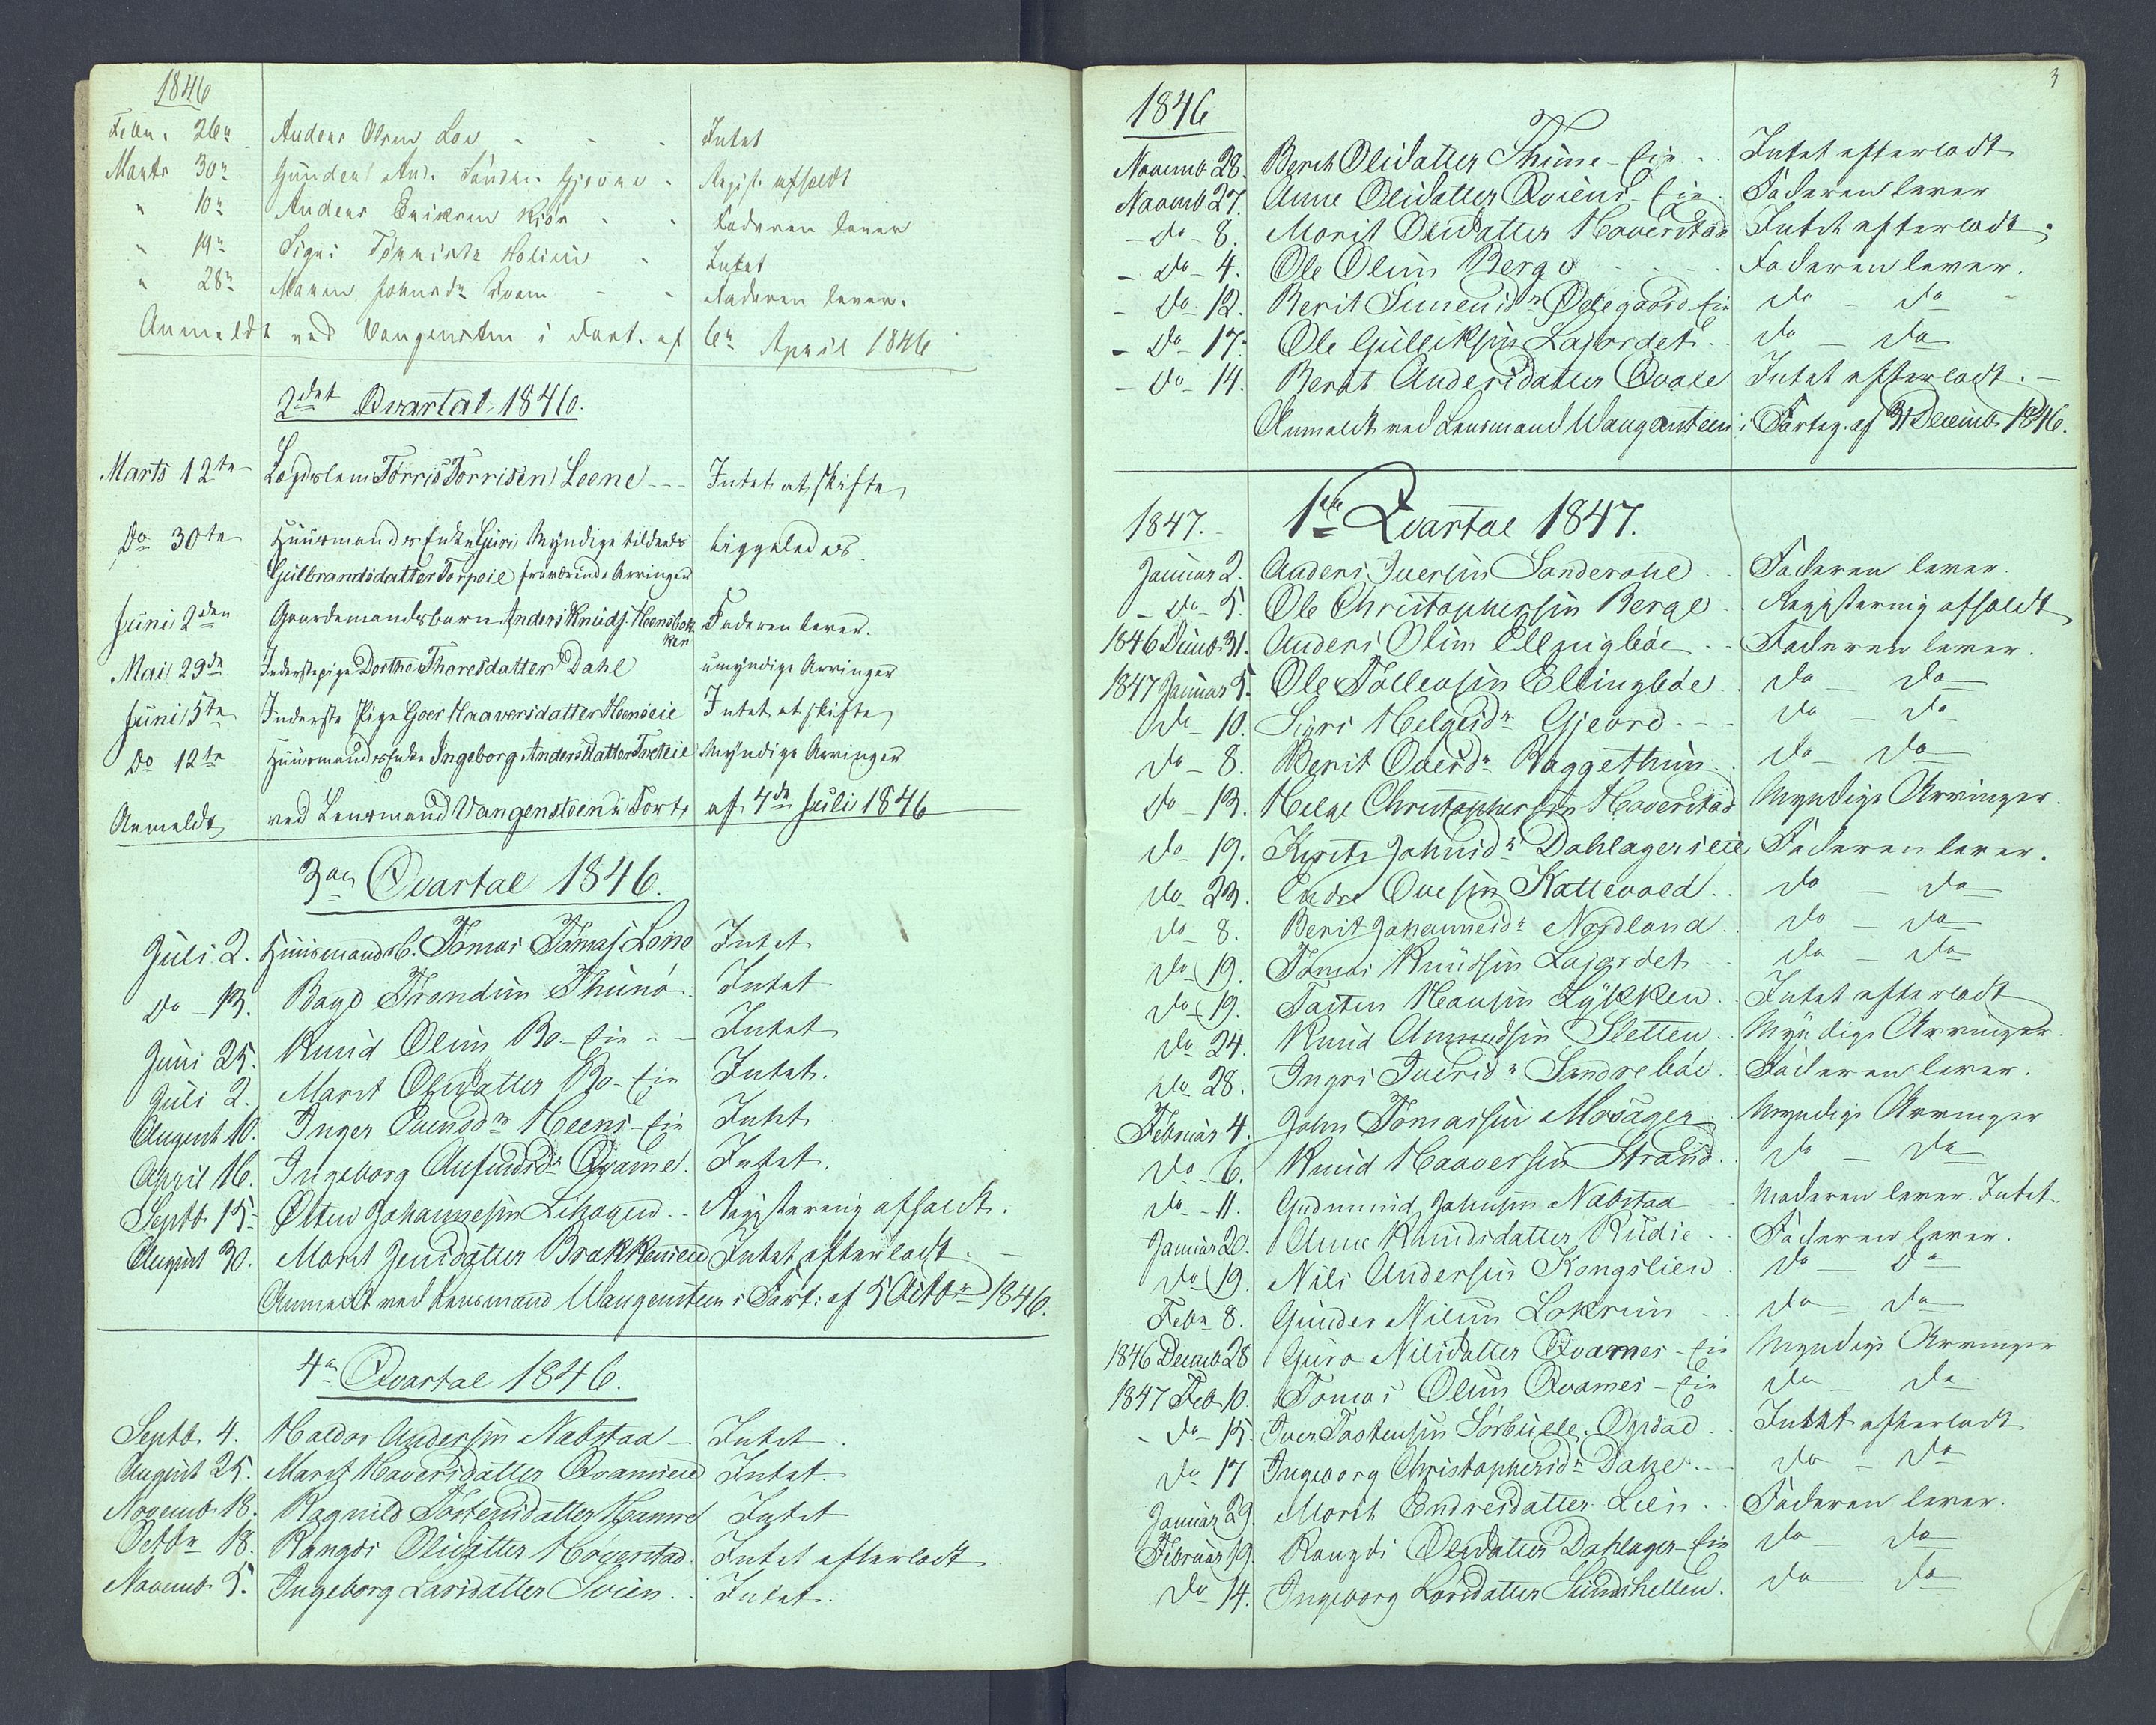 1846
Febr. 26n Anders Olsen Loe - - - Intet
Marts 30n Gunder And. Søndr. Gjevre - Regist. afholdt
" 10n Anders Eriksen Kiøs - - Faderen lever
" 19n Sigri Tommisdr Holien - Intet
" 28n Maren Johnsdr Qvam - - Faderen lever.
Anmeldt ved Vangensten i Fort. af 6n April 1846
2det Qvartal 1846.
Marts 12te Lægdslem Torris Torrisen Loene --- Intet at skifte
Do 30te Huusmands Enke Guri Myndige tildeels liggeledes.
Gulbrandsdatter Torpeie fraværende Arvinger
Juni 2den Gaardemandsbarn Anders Knuds. Heensbak Faderen lever.
ken
Mai 29de Inderstepige Dorthe Thoresdatter Dahl umyndige Arvinger
Juni 5te Inderste Pige Goer Haaversdatter Heenseie Intet at skifte
Do 12te Huusmands Enke Ingeborg Andersdatter Tveteie Myndige Arvinger
Anmeldt ved Lensmand Vangensteen i Fort. af 4de Juli 1846
3die Qvartal 1846.
Juli 2. Huusmandsb. Tomas Tomas. Lono Intet
Do - 13. Bayo Trondsen Thune Intet
Juni 25. Knud Olsen Bo-Eie - - Intet
Juli 2. Marit Olsdatter Bo-Eie Intet.
August 10. Inger Svensdr Heens-Eie Intet
April 16. Ingeborg Anfindsdr Qvame. Intet.
Septb. 15. Østen Johannesen Lihagen .. Registrering afholdt.
August 30. Marit Jensdatter Brækkenseie Intet efterladt. -
Anmeldt ved Lensmand Wangensteen i Fort: af 5 Octbr 1846.
4de Qvartal 1846.
Septb. 4. Haldor Andersen Nabstaa - Intet.
August 25. Marit Haversdatter Qvamseie Intet
Novemb. 18. Ragnild Tostensdatter Hamre Intet
Octbr 18. Rangdi Olsdatter Høverstad Intet efterladt
Novemb. 5. Ingeborg Larsdatter Svien .. Intet.
3
1846
Novemb. 28. Berit Olsdatter Thune-Eie .. Intet efterladt
Novemb 27. Anne Olsdatter Qviens-Eie. Faderen lever
- do - 8. Marit Olsdatter Haverstad Intet efterladt.
- do - 4. Ole Olsen Berge .... Faderen lever.
- do - 12. Berit Simensdr Ødegaard-Eie do - do -
- do - 17. Ole Gulliksen Lajordet .. do - do
- do - 14. Berit Andersdatter Qvale Intet efterladt. -
Anmeldt ved Lensmand Wangensteen i Forteg. af 31 Decemb. 1846.
1847. 1ste Qvartal 1847.
Januar 2. Anders Iversen Sanderohe .. Faderen lever.
- do - 5. Ole Christophersen Berge .. Registrering afholdt
1846 Decmb 31. Anders Olsen Ellingbøe .. Faderen lever.
1847 Januar 5. Ole Tollevsen Ellingbøe. do - do
do - 10. Sigri Helgesdr Gjevre --- do - do
do - 8. Berit Ovesdr Baggethun . do - do
do - 13. Helge Christophersen Haverstad Myndige Arvinger.
do - 19. Kjersti Johnsdr Dahlagerseie Faderen lever.
do 23. Endre Ovesen Kattevold .. do - do
do - 8. Berit Johannesdr Nordland. do - do
do 19. Tomas Knudsen Lajordet .. do - do
do 19. Tosten Hansen Lykken . Intet efterladt
do 24. Knud Amundsen Sletten .. Myndige Arvinger.
do 28. Ingri Iversdr Sandrebøe. Faderen lever.
Februar 4. John Tomassen Mosager . Myndige Arvinger
do - 6. Knud Haaversen Strand. do - do
do - 11. Gudmund Johnsen Nabstaa .. Moderen lever. Intet.
Januar 20. Anne Knudsdatter Rudie .. Faderen lever.
do 19. Nils Andersen Kongslien . do - do
Febr 8. Gunder Nilsen Lokrein ... do - do
1846 Decmb 28 Guro Nilsdatter Qvames-Eie Myndige Arvinger
1847 Feb. 10. Tomas Olsen Qvames-Eie do - do
- do - 15. Iver Tostensen Sørbuelle. Opdad .. Intet efterladt
do 17 Ingeborg Christophersdr Dahe .. do - do
Januar 29. Marit Endresdatter Lien .. Faderen lever.
Februar 19. Rangdi Olsdatter Dahlager-Eie do - do
do 14. Ingeborg Larsdatter Sundhellen. do - do